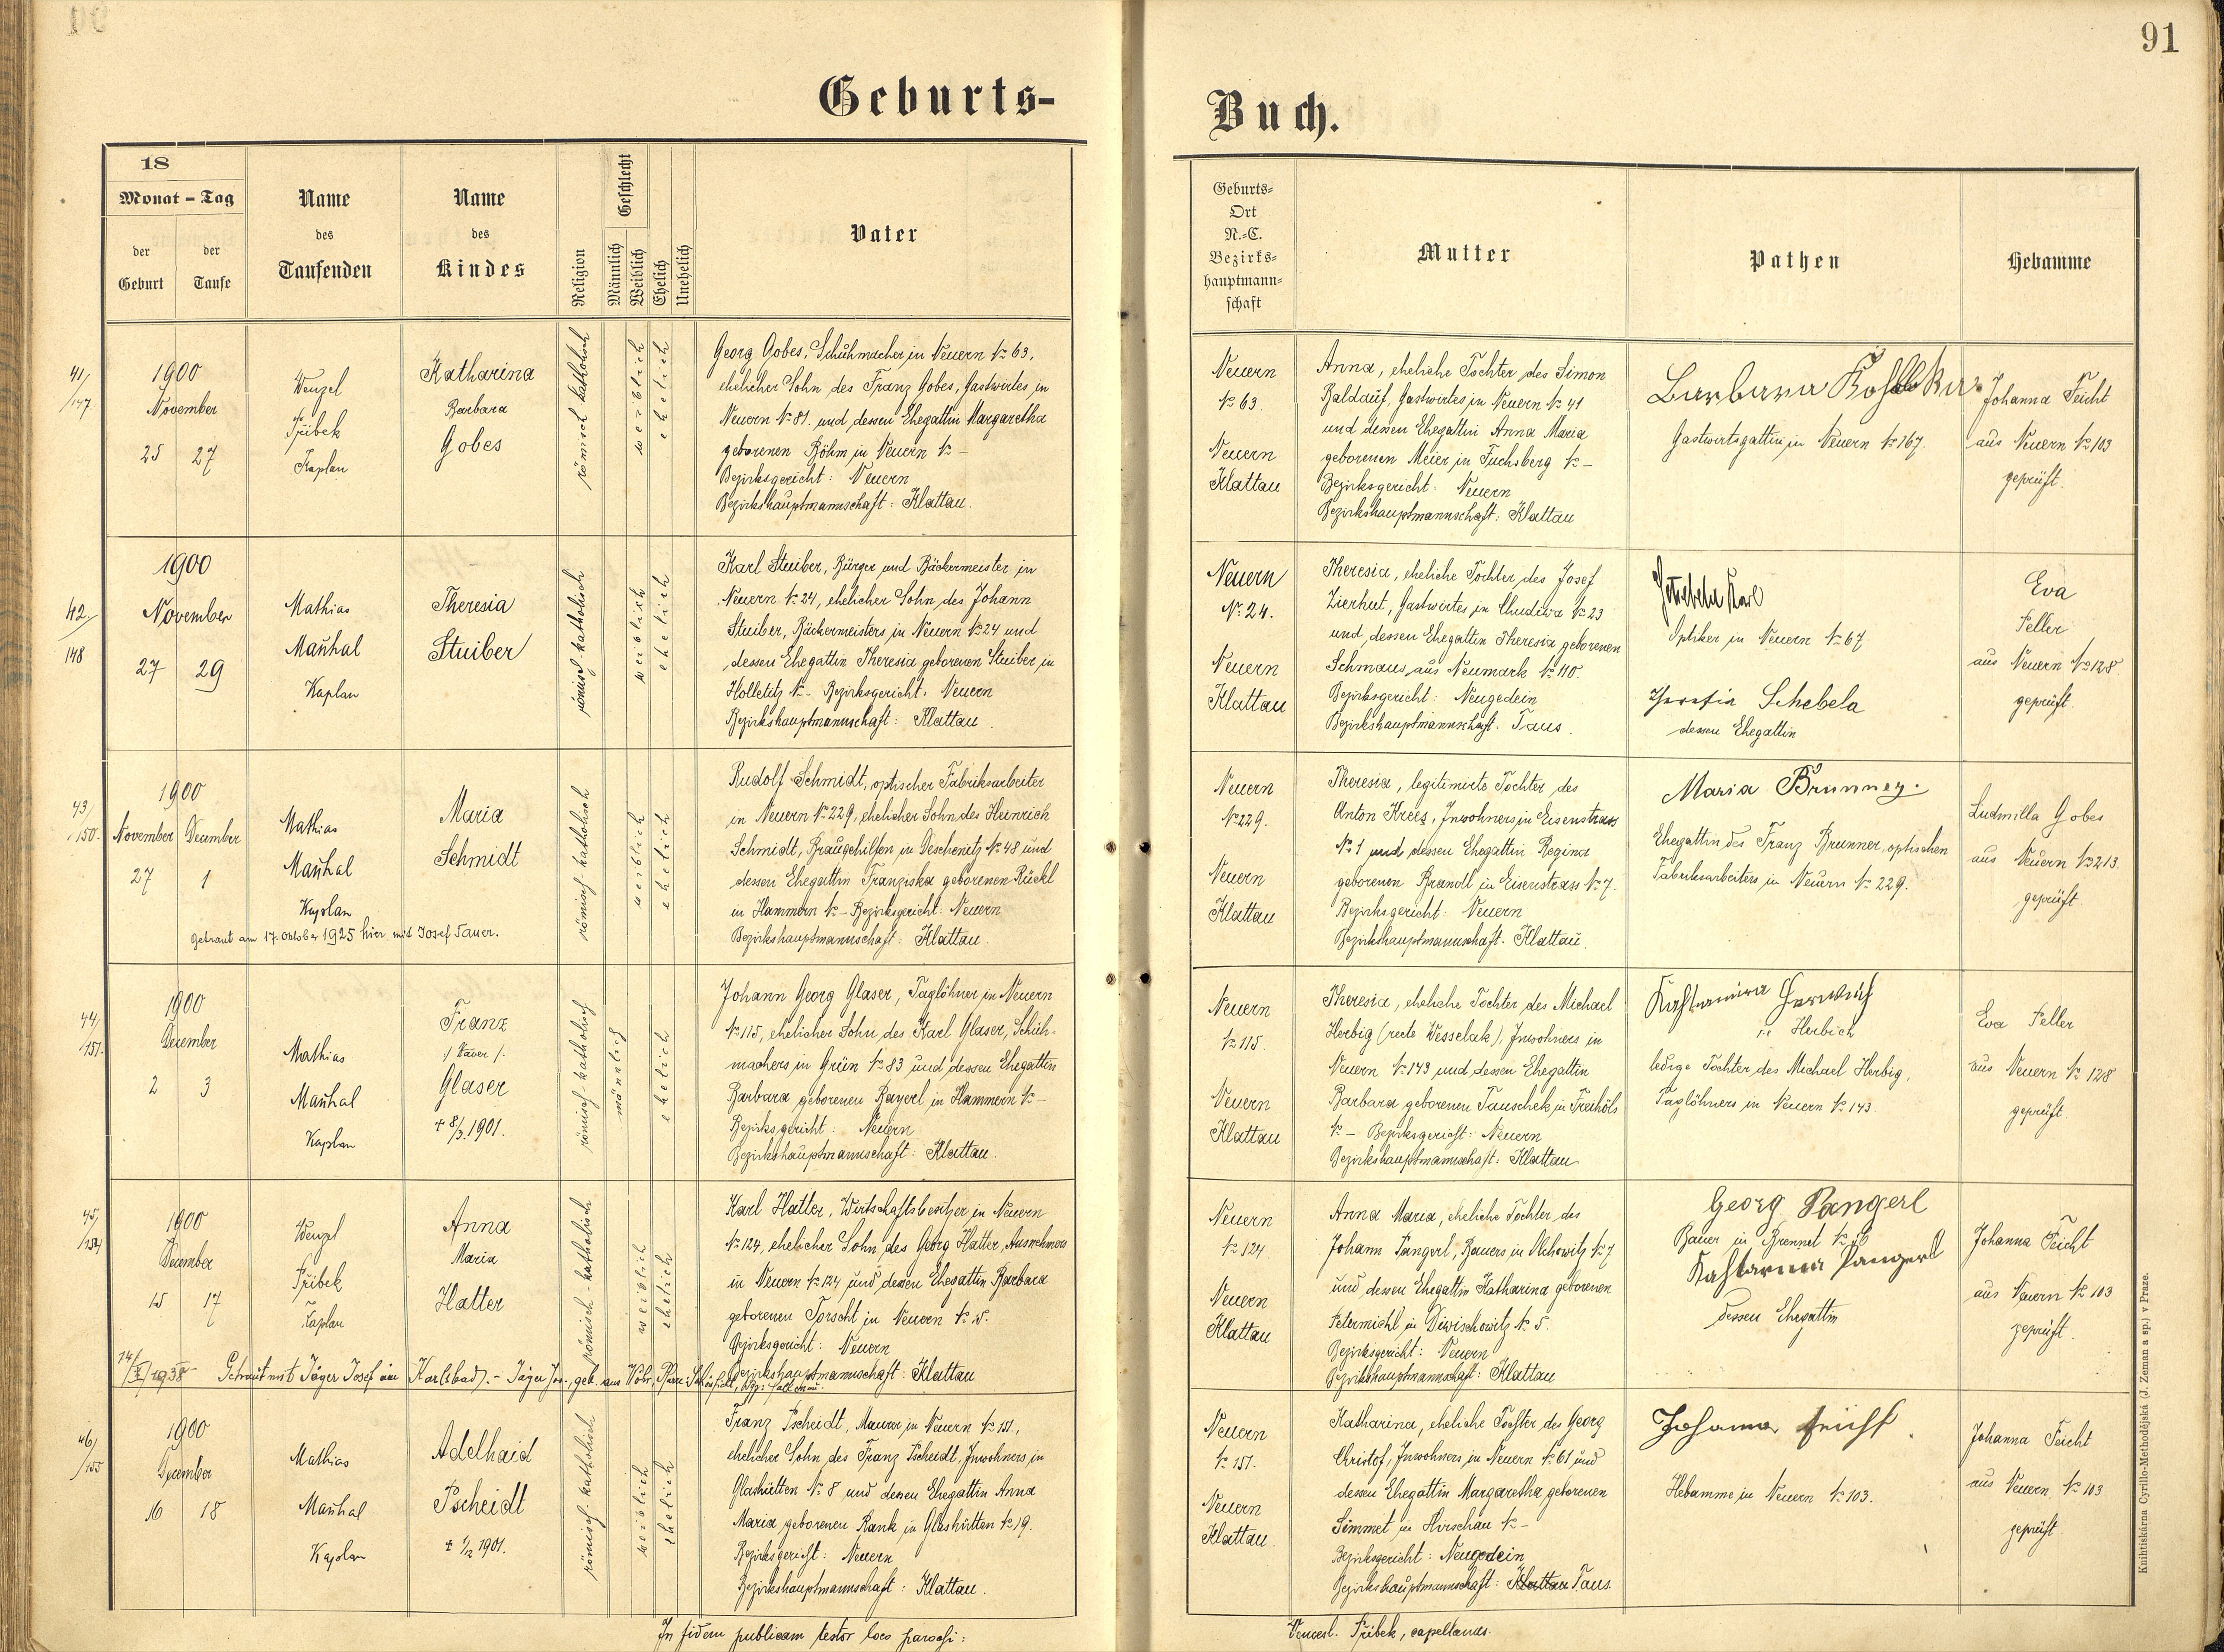 91
Geburts-
Buch.
18
Monat - Tag
der Geburt
der Taufe
Name
des
Taufenden
Name
des
Kindes
Religion
Geschlecht
Männlich
Weiblich
Ehelich
Unehelich
Vater
Geburts-
Ort
N.-C.
Bezirks-
hauptmann-
schaft
Mutter
Pathen
Hebamme
41/147
1900
November
25 27
Wenzel
Přibek
Kaplan
Katharina
Barbara
Gobes
römisch katholisch
weiblich
ehelich
Georg Gobes, Schuhmacher in Neuern № 63,
ehelicher Sohn des Franz Gobes, Gastwirtes in
Neuern № 81. und dessen Ehegattin Margaretha
geborenen Böhm in Neuern № –
Bezirksgericht: Neuern
Bezirkshauptmannschaft: Klattau.
Neuern
№ 63.
Neuern
Klattau
Anna, eheliche Tochter des Simon
Baldauf, Gastwirtes in Neuern № 41
und dessen Ehegattin Anna Maria
geborenen Meier in Fuchsberg № –
Bezirksgericht: Neuern
Bezirkshauptmannschaft: Klattau
Barbara
Gastwirtsgattin in Neuern № 167.
Johanna Feicht
aus Neuern № 103
geprüft.
42./148
1900
November
27 29
Mathias
Mauhal
Kaplan
Theresia
Stuiber
römisch-katholisch
weiblich
ehelich
Karl Stuiber, Bürger und Bäckermeister in
Neuern № 24, ehelicher Sohn des Johann
Stuiber, Bäckermeisters in Neuern № 24 und
dessen Ehegattin Theresia geborenen Stuiber in
Holletitz № – Bezirksgericht: Neuern
Bezirkshauptmannschaft: Klattau.
Neuern
№ 24.
Neuern
Klattau
Theresia, eheliche Tochter des Josef
Zierhut, Gastwirtes in Chudiwa № 23
und dessen Ehegattin Theresia geborenen
Schmaus aus Neumark № 110.
Bezirksgericht: Neugedein
Bezirkshauptmannschaft: Taus.
Karl
Optiker in Neuern № 67
Schebela
dessen Ehegattin
Eva
Feller
aus Neuern № 128
geprüft.
43/150.
1900
November December
27 1
Mathias
Mauhal
Kaplan
Maria
Schmidt
römisch-katholisch
weiblich
ehelich
Rudolf Schmidt, optischer Fabriksarbeiter
in Neuern № 229, ehelicher Sohn des Heinrich
Schmidt, Braugehilfen in Deschenitz № 48 und
dessen Ehegattin Franziska geborenen Rückl
in Hammern № – Bezirksgericht: Neuern
Bezirkshauptmannschaft: Klattau.
getraut am 17. Oktober 1925 hier mit Josef Tauer.
Neuern
№ 229.
Neuern
Klattau
Theresia, legitimirte Tochter des
Anton Krees, Inwohners in Eisenstrass
№ 1 und dessen Ehegattin Regina
geborenen Brandl in Eisenstrass № 7.
Bezirksgericht: Neuern
Bezirkshauptmannschaft: Klattau.
Maria Brunner.
Ehegattin des Franz Brunner, optischen
Fabriksarbeiters in Neuern № 229.
Ludmilla Gobes
aus Neuern № 213.
geprüft.
44/151.
1900
December
2 3
Mathias
Mauhal
Kaplan
Franz
Glaser
+ 8/3.1901.
römisch-katholisch
männlich
ehelich
Johann Georg Glaser, Taglöhner in Neuern
№ 115, ehelicher Sohn des Karl Glaser, Schuh-
machers in Grün № 83 und dessen Ehegattin
Barbara geborenen Bayerl in Hammern № –
Bezirksgericht: Neuern
Bezirkshauptmannschaft: Klattau.
Neuern
№ 115.
Neuern
Klattau
Theresia, eheliche Tochter des Michael
Herbig (recte Wesselak), Inwohners in
Neuern № 143 und dessen Ehegattin
Barbara geborenen Tauschek in Freihöls
№ – Bezirksgericht: Neuern
Bezirkshauptmannschaft: Klattau
Katharina
Herbich
ledige Tochter des Michael Herbig,
Taglöhners in Neuern № 143.
Eva Feller
aus Neuern № 128
geprüft.
45/154
1900
December
15 17
Wenzel
Přibek
Kaplan
Anna
Maria
Hatter
römisch-katholisch
weiblich
ehelich
Karl Hatter, Wirtschaftsbesitzer in Neuern
№ 124, ehelicher Sohn des Georg Hatter, Ausnehmers
in Neuern № 124 und dessen Ehegattin Barbara
geborenen Torscht in Neuern № 15.
Bezirksgericht: Neuern
Bezirkshauptmannschaft: Klattau
Getraut mit Jäger Josef in Karlsbad. - Jäger Jos., geb. aus
Neuern
№ 124.
Neuern
Klattau
Anna Maria, eheliche Tochter des
Johann Pangerl, Bauers in Olchowitz № 7
und dessen Ehegattin Katharina geborenen
Petermichl in Diwischowitz № 5.
Bezirksgericht: Neuern
Bezirkshauptmannschaft: Klattau
Georg Pangerl
Bauer in Brennet №
Katharina Pangerl
dessen Ehegattin
Johanna Feicht
aus Neuern № 103
geprüft.
46/155
1900
December
16 18
Mathias
Mauhal
Kaplan
Adelhaid
Pscheidt
+ 1/12 1901.
römisch-katholisch
weiblich
ehelich
Franz Pscheidt, Maurer in Neuern № 151.,
ehelicher Sohn des Franz Pscheidt, Inwohners in
Glashütten № 8 und dessen Ehegattin Anna
Maria geborenen Rank in Glashütten № 19.
Bezirksgericht: Neuern
Bezirkshauptmannschaft: Klattau.
Neuern
№ 151.
Neuern
Klattau.
Katharina, eheliche Tochter des Georg
Christof, Inwohners in Neuern № 61 und
dessen Ehegattin Margaretha geborenen
Simmet in Hirschau № –
Bezirksgericht: Neugedein
Bezirkshauptmannschaft: Klattau Taus
Johanna Feicht.
Hebamme in Neuern № 103.
Johanna Feicht
aus Neuern № 103
geprüft
In fidem publicam testor loco parochi:
Vencesl. Přibek, capellanus.
Knihtiskárna Cyrillo-Methodějská (J. Zeman a sp.) v Praze.